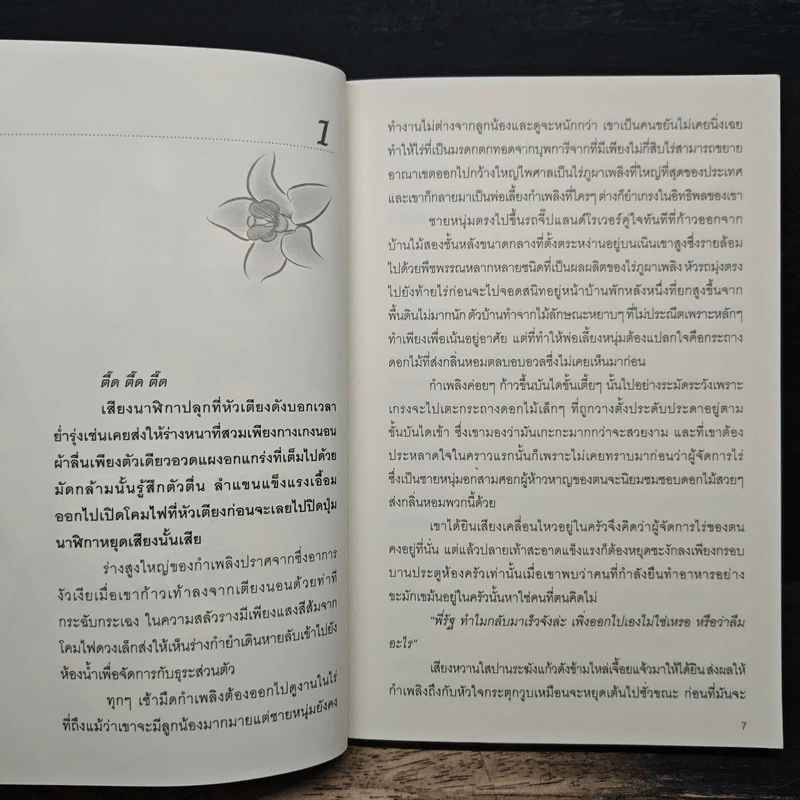 1
ตื๊ด ตื๊ด ตื๊ด
เสียงนาฬิกาปลุกที่หัวเตียงดังบอกเวลา
ย่ำรุ่งเช่นเคยส่งให้ร่างหนาที่สวมเพียงกางเกงนอน
ผ้าลื่นเพียงตัวเดียวอวดแผงอกแกร่งที่เต็มไปด้วย
มัดกล้ามนั้นรู้สึกตัวตื่น ลำแขนแข็งแรงเอื้อม
ออกไปเปิดโคมไฟที่หัวเตียงก่อนจะเลยไปปิดปุ่ม
นาฬิกาหยุดเสียงนั้นเสีย
ร่างสูงใหญ่ของกำเพลิงปราศจากซึ่งอาการ
งัวเงียเมื่อเขาก้าวเท้าลงจากเตียงนอนด้วยท่าที
กระฉับกระเฉง ในความสลัวรางมีเพียงแสงสีส้มจาก
โคมไฟดวงเล็กส่งให้เห็นร่างกำยำเดินหายลับเข้าไปยัง
ห้องน้ำเพื่อจัดการกับธุระส่วนตัว
ทุกๆ เช้ามืดกำเพลิงต้องออกไปดูงานในไร่
ที่ถึงแม้ว่าเขาจะมีลูกน้องมากมายแต่ชายหนุ่มยังคง
ทำงานไม่ต่างจากลูกน้องและดูจะหนักกว่า เขาเป็นคนขยันไม่เคยนิ่งเฉย
ทำให้ไร่ที่เป็นมรดกตกทอดจากบุพการีจากที่มีเพียงไม่กี่สิบไร่สามารถขยาย
อาณาเขตออกไปกว้างใหญ่ไพศาลเป็นไร่ภูผาเพลิงที่ใหญ่ที่สุดของประเทศ
และเขาก็กลายมาเป็นพ่อเลี้ยงกำเพลิงที่ใครๆ ต่างก็ยำเกรงในอิทธิพลของเขา
ชายหนุ่มตรงไปขึ้นรถจี๊ปแลนด์โรเวอร์คู่ใจทันทีที่ก้าวออกจาก
บ้านไม้สองชั้นหลังขนาดกลางที่ตั้งตระหง่านอยู่บนเนินเขาสูงซึ่งรายล้อม
ไปด้วยพืชพรรณหลากหลายชนิดที่เป็นผลผลิตของไร่ภูผาเพลิง หัวรถมุ่งตรง
ไปยังท้ายไร่ก่อนจะไปจอดสนิทอยู่หน้าบ้านพักหลังหนึ่งที่ยกสูงขึ้นจาก
พื้นดินไม่มากนัก ตัวบ้านทำจากไม้ลักษณะหยาบๆ ที่ไม่ประณีตเพราะหลักๆ
ทำเพียงเพื่อเน้นอยู่อาศัย แต่ที่ทำให้พ่อเลี้ยงหนุ่มต้องแปลกใจคือกระถาง
ดอกไม้ที่ส่งกลิ่นหอมตลบอบอวลซึ่งไม่เคยเห็นมาก่อน
กำเพลิงค่อยๆ ก้าวขึ้นบันไดขั้นเตี้ยๆ นั้นไปอย่างระมัดระวังเพราะ
เกรงจะไปเตะกระถางดอกไม้เล็กๆ ที่ถูกวางตั้งประดับประดาอยู่ตาม
ขั้นบันไดเข้า ซึ่งเขามองว่ามันเกะกะมากกว่าจะสวยงาม และที่เขาต้อง
ประหลาดใจในคราวแรกนั้นก็เพราะไม่เคยทราบมาก่อนว่าผู้จัดการไร่
ซึ่งเป็นชายหนุ่มอกสามศอกผู้ห้าวหาญของตนจะนิยมชมชอบดอกไม้สวยๆ
ส่งกลิ่นหอมพวกนี้ด้วย
เขาได้ยินเสียงเคลื่อนไหวอยู่ในครัวจึงคิดว่าผู้จัดการไร่ของตน
คงอยู่ที่นั่น แต่แล้วปลายเท้าสะอาดแข็งแรงก็ต้องหยุดชะงักลงเพียงกรอบ
บานประตูห้องครัวเท่านั้นเมื่อเขาพบว่าคนที่กำลังยืนทำอาหารอย่าง
ขะมักเขม้นอยู่ในครัวนั้นหาใช่คนที่ตนคิดไม่
"พี่รัฐ ทำไมกลับมาเร็วจังล่ะ เพิ่งออกไปเองไม่ใช่เหรอ หรือว่าลืม
อะไร"
เสียงหวานใสปานระฆังแก้วดังข้ามไหล่เจื้อยแจ้วมาให้ได้ยิน ส่งผลให้
กำเพลิงถึงกับหัวใจกระตุกวูบเหมือนจะหยุดเต้นไปชั่วขณะ ก่อนที่มันจะ
7